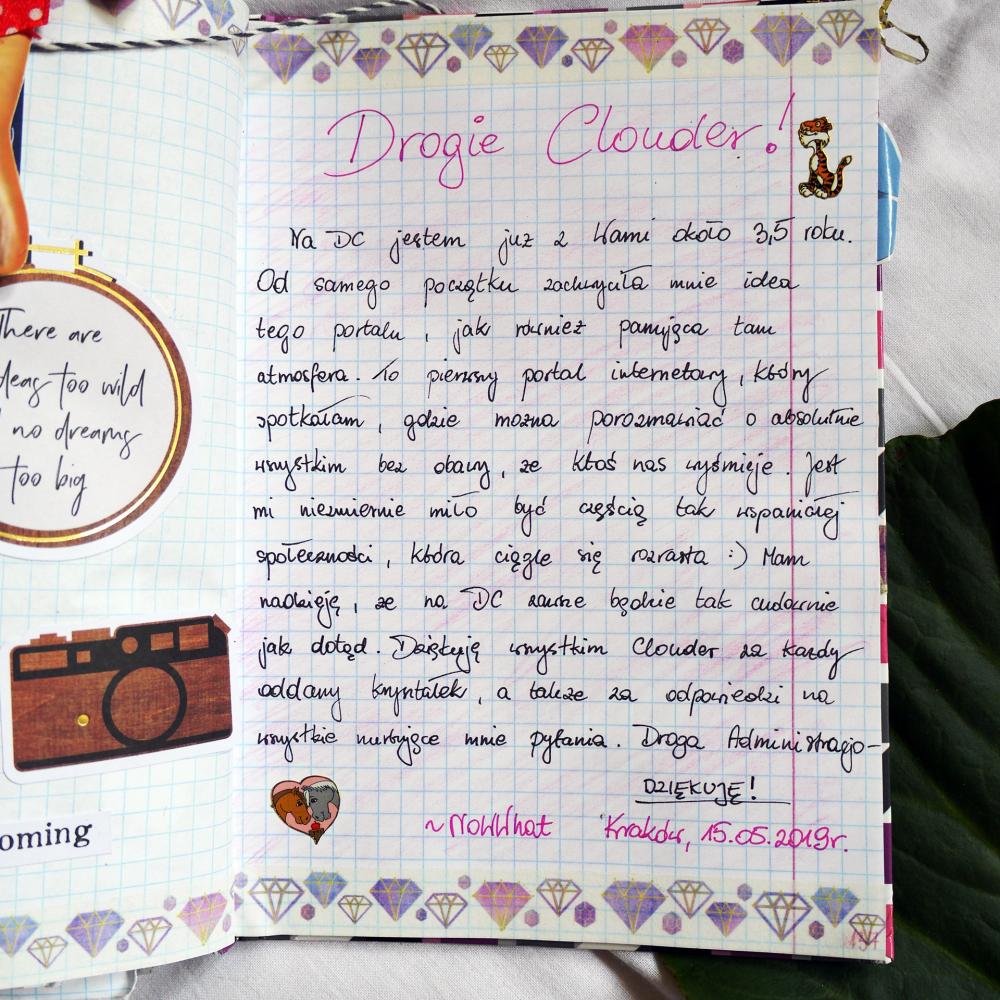 Drogie Clouder!
Na DC jestem już z Wami około 3,5 roku.
Od samego początku zachwyciła mnie idea
tego portalu, jak również panująca tam
atmosfera. To pierwszy portal internetowy, który
spotkałam, gdzie można porozmawiać o absolutnie
wszystkim bez obawy, że ktoś nas wyśmieje. Jest
mi niezmiernie miło być częścią tak wspaniałej
społeczności, która ciągle się rozrasta :) Mam
nadzieję, że na DC zawsze będzie tak cudownie
jak dotąd. Dziękuję wszystkim Clouder za każdy
oddany kryształek, a także za odpowiedzi na
wszystkie nurtujące mnie pytania. Droga Administracjo-
DZIĘKUJĘ!
~NowWhat Kraków, 15.05.2019r.
There are
ideas too wild
no dreams
too big
oming